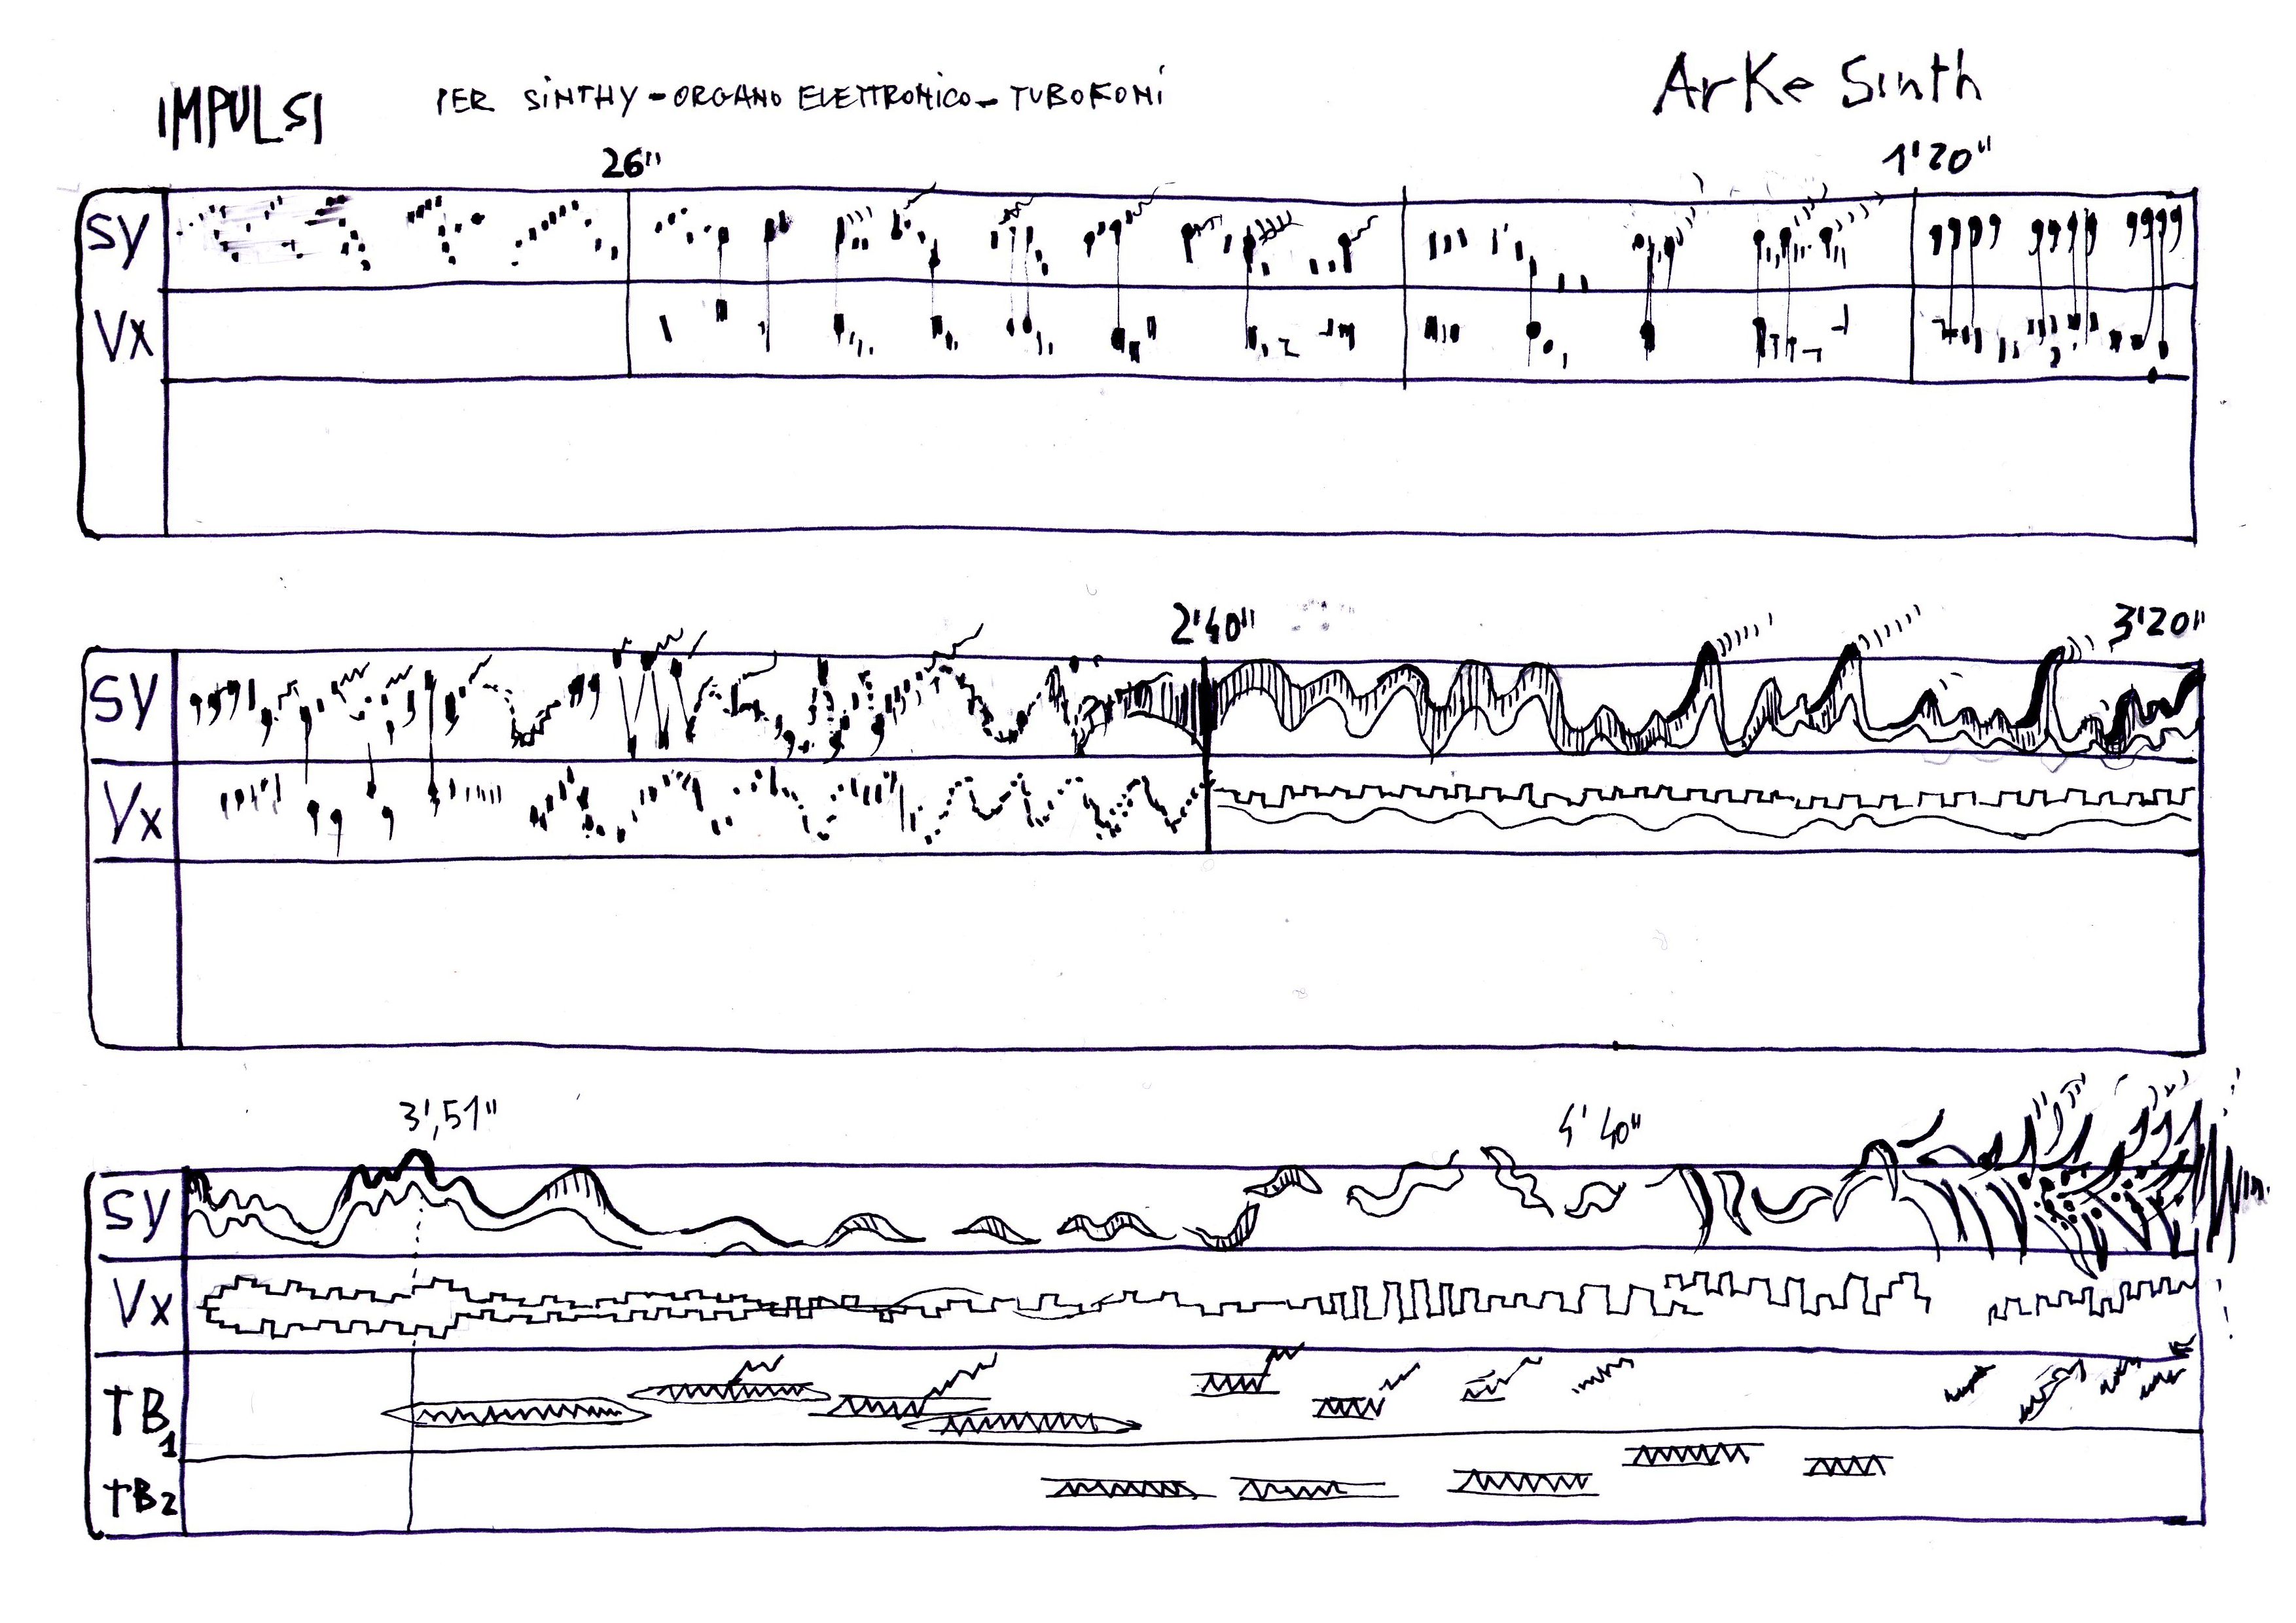 IMPULSI PER SINTHY - ORGANO ELETTRONICO - TUBOFONI ArKe Sinth
26" 1'20"
Sy
Vx
2'40" 3'20"
Sy
Vx
3',51" 4'40"
Sy
Vx
TB1
TB2